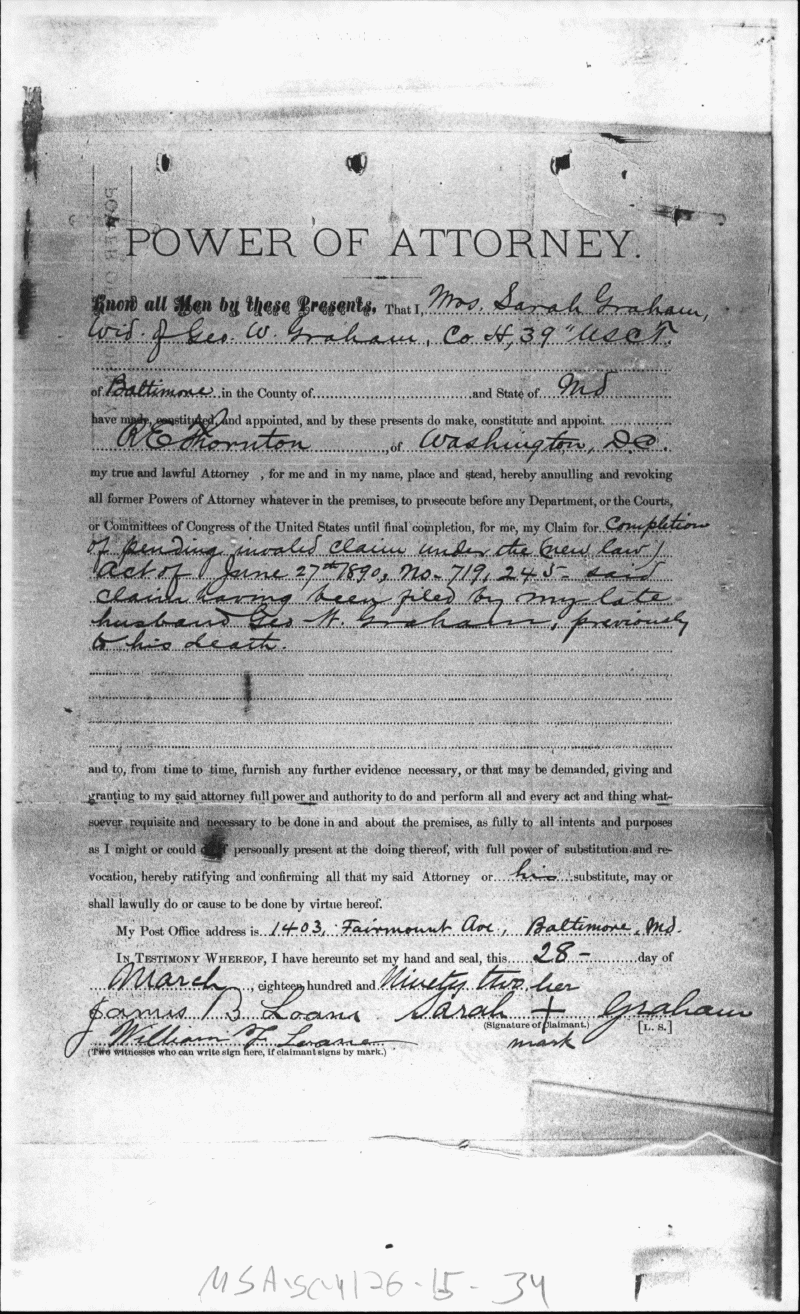 POWER OF ATTORNEY.
Know all Men by these Presents, That I, Mrs. Sarah Graham,
Wid. of Geo. W. Graham, Co H, 39" USCT.
of Baltimore in the County of and State of Md
have made, constituted, and appointed, and by these presents do make, constitute and appoint
R E Thornton, of Washington, D.C.
my true and lawful Attorney , for me and in my name, place and stead, hereby annulling and revoking
all former Powers of Attorney whatever in the premises, to prosecute before any Department, or the Courts,
or Committees of Congress of the United States until final completion, for me, my Claim for Completion
of pending invalid claim under the (new law)
act of June 27th 1890, No. 719,245 - said
claim having been filed by my late
husband Geo W. Graham, previously
to his death.
and to, from time to time, furnish any further evidence necessary, or that may be demanded, giving and
granting to my said attorney full power and authority to do and perform all and every act and thing what-
soever requisite and necessary to be done in and about the premises, as fully to all intents and purposes
as I might or could personally present at the doing thereof, with full power of substitution and re-
vocation, hereby ratifying and confirming all that my said Attorney or his substitute, may or
shall lawully do or cause to be done by virtue hereof.
My Post Office address is 1403, Fairmount Ave, Baltimore, Md.
In Testimony Whereof, I have hereunto set my hand and seal, this 28 - day of
March, eighteen hundred and Ninety two her
James B Loane Sarah + Graham
(Signature of Claimant.) [L. S.]
William F Loane mark
(Two witnesses who can write sign here, if claimant signs by mark.)
MSA SC 4126-15-34